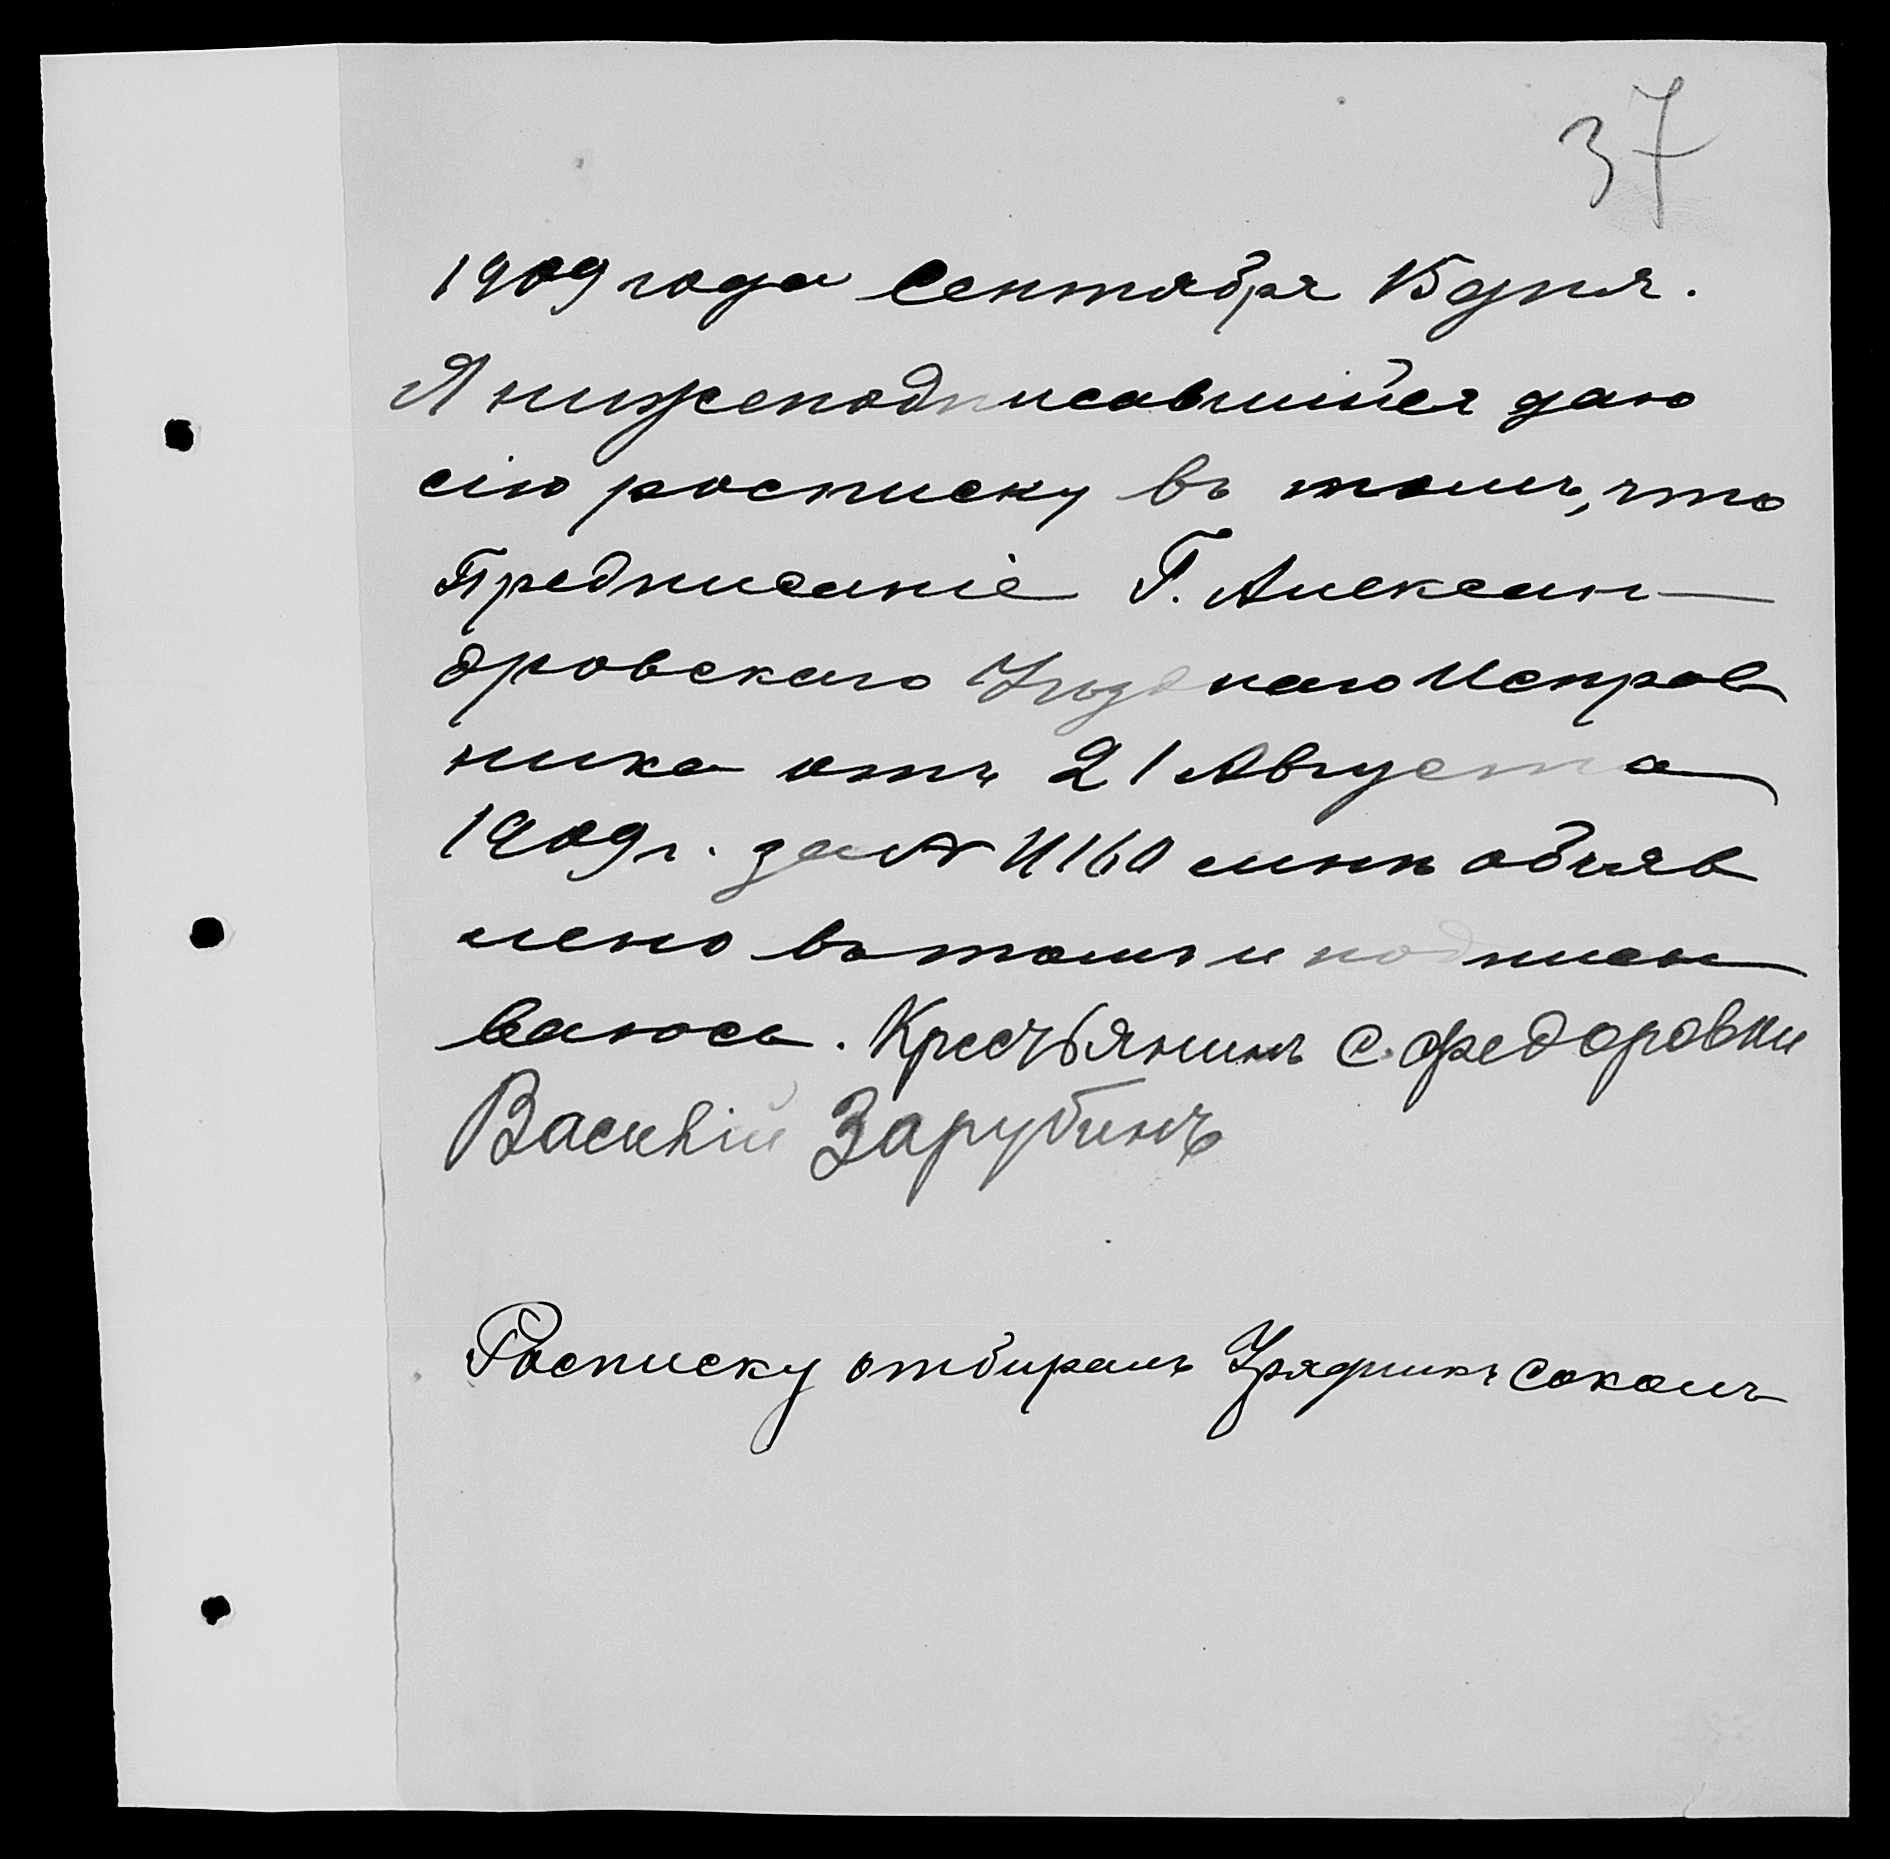 37
1909 года Сентября 15 дня.
Я нижеподписавшійся даю
сію росписку въ томъ, что
Предписаніе Г. Алексан-
дровскаго Уѣзднаго Исправ
ника отъ 21 Августа
1909 г. за № 4160 мнѣ объяв
лено въ томъ и подписы
ваюсь. Кресчьянинъ с. Федоровки
Василій Зарубинъ
Росписку отбиралъ Урядникъ Соколъ